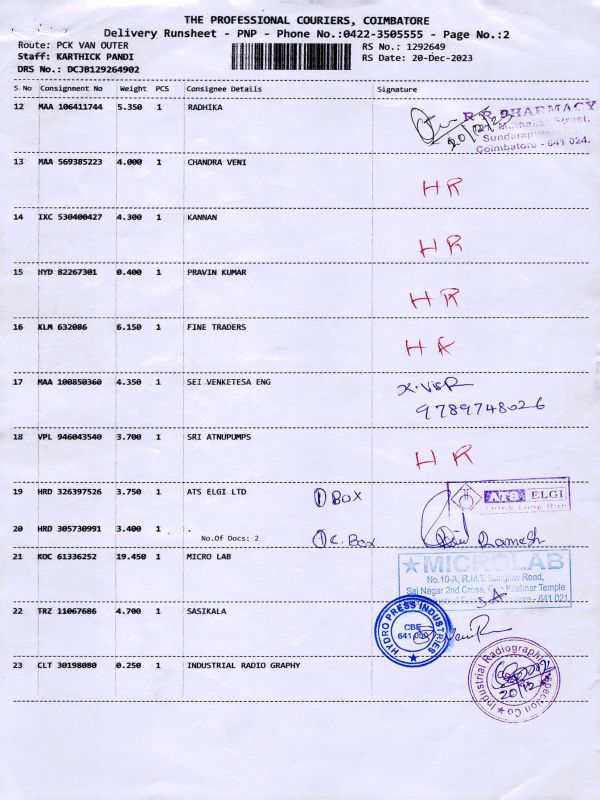 THE PROFESSIONAL COURIERS, COIMBATORE
Delivery Runsheet - PNP - Phone No.:0422-3505555 - Page No.:2
Route: PCK VAN OUTER RS No.: 1292649
Staff: KARTHICK PANDI RS Date: 20-Dec-2023
DRS No.: DCJB129264902
S No Consignment No Weight PCS Consignee Details Signature
12 MAA 106411744 5.350 1 RADHIKA
PHARMACY
Street,
Coimbatore - 641 024.
20/12/23
13 MAA 569385223 4.000 1 CHANDRA VENI
HR
14 IXC 530400427 4.300 1 KANNAN
HR
15 HYD 82267301 0.400 1 PRAVIN KUMAR
HR
16 KLM 632086 6.150 1 FINE TRADERS
HR
17 MAA 100850360 4.350 1 SEI VENKETESA ENG
9789748026
18 VPL 946043540 3.700 1 SRI ATNUPUMPS
HR
19 HRD 326397526 3.750 1 ATS ELGI LTD ① BOX
ATS ELGI
20 HRD 305730991 3.400 1 .
No.Of Docs: 2 ① C. Box Ramesh
21 KOC 61336252 19.450 1 MICRO LAB
★ MICROLAB
No.10-A, R.M.T. Bunglow Road,
Sai Nagar 2nd Cross, Krishnar Temple
641 021
22 TRZ 11067686 4.700 1 SASIKALA
HYDRO PRESS INDUSTRIES
CBE
23 CLT 30198080 0.250 1 INDUSTRIAL RADIO GRAPHY
Industrial Radiography
20/12